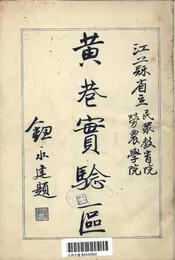 江蘇省立民眾教育院
勞農學院
黃巷實驗區
鈕永建題